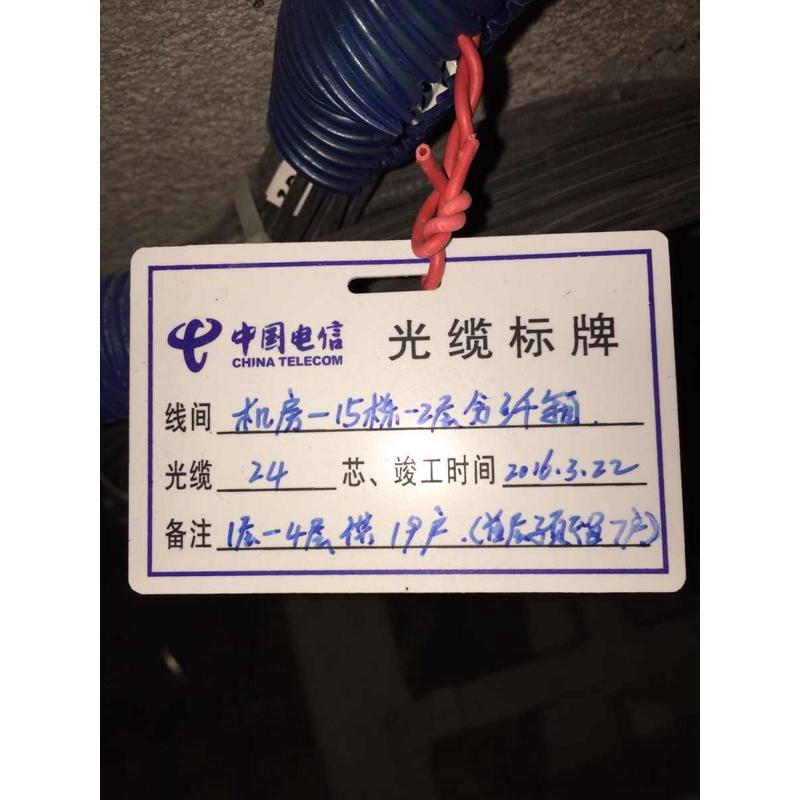 中国电信
CHINA TELECOM
光缆标牌
线间 机房-15栋-2层分纤箱
光缆 24 芯、竣工时间 2016.3.22
备注 1层-4层供19户.(首层预留7户)